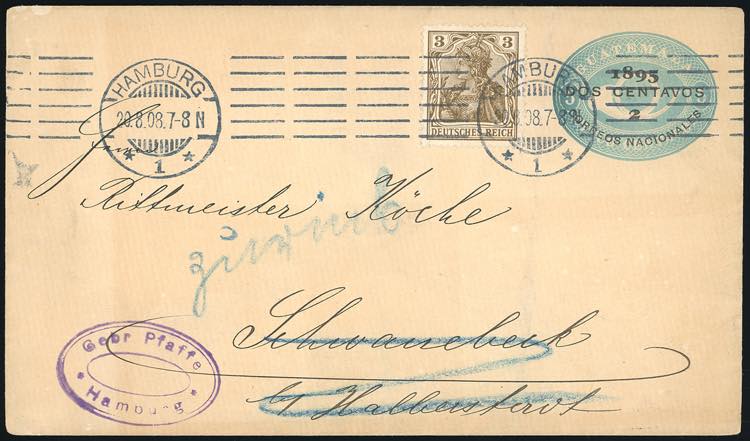 HAMBURG
20.8.08.7-8 N
* 1 *
3 3
DEUTSCHES REICH
HAMBURG
20.8.08.7-8 N
* 1 *
GUATEMALA
1895
DOS CENTAVOS
2
CORREOS NACIONALES
Rittmeister Köche
zurück
Schwanebeck
b/ Halberstadt
Gebr Pfaffe
* Hamburg *